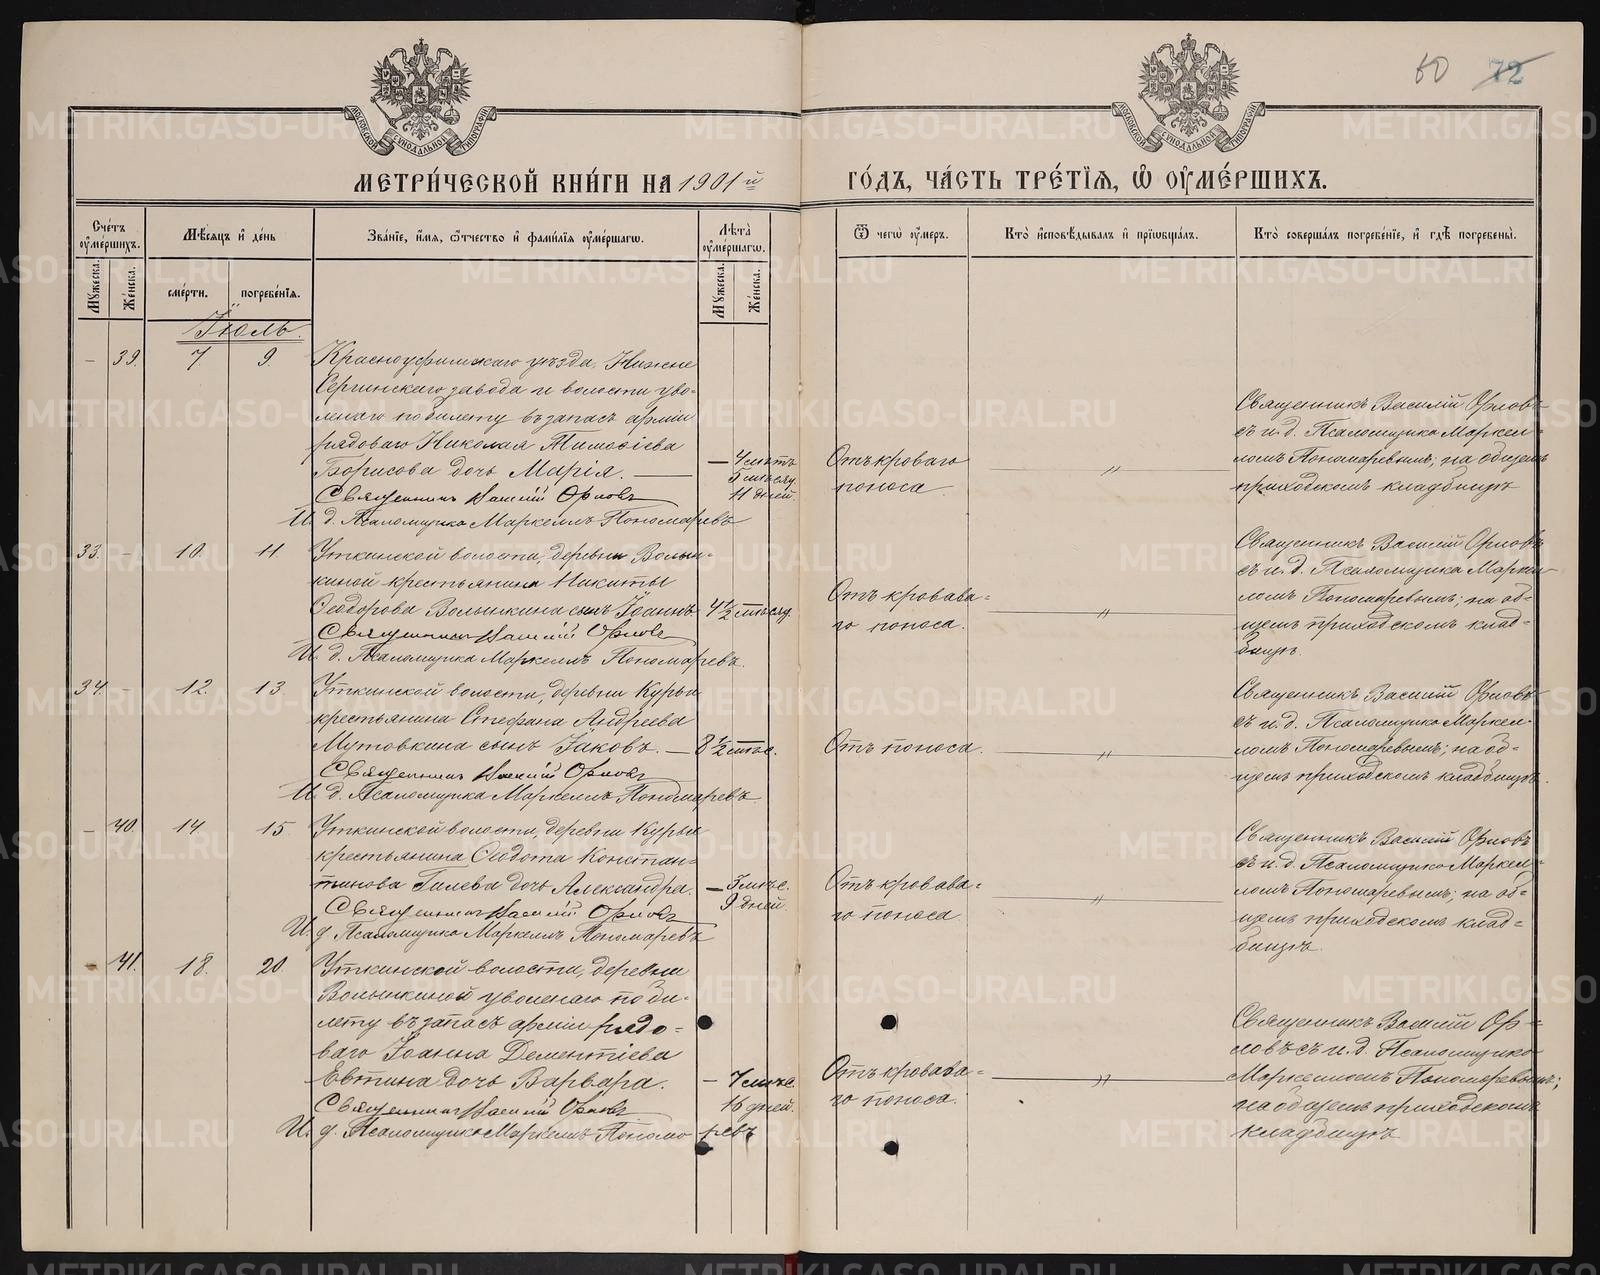 60 72
МОСКОВСКОЙ СѴНОДАЛЬНОЙ ТИПОГРАФІИ
МОСКОВСКОЙ СѴНОДАЛЬНОЙ ТИПОГРАФІИ
МЕТРИ́ЧЕСКОЙ КНИ́ГИ НА 1901й ГО́ДЪ, ЧА́СТЬ ТРЕ́ТІѦ, Ѡ ОУ҆МЕ́РШИХЪ.
Сче́тъ оу҆ме́ршихъ.
Мꙋ́жеска.
Же́нска.
Мѣ́сѧцъ и҆ де́нь
сме́рти.
погребе́нїѧ.
Зва́нїе, и҆́мѧ, ѻ҆́тчество и҆ фами́лїѧ оу҆ме́ршагѡ.
Лѣ́та оу҆ме́ршагѡ.
Мꙋ́жеска.
Же́нска.
Ѿ чегѡ̀ оу҆́меръ.
Кто̀ и҆сповѣ́дывалъ и҆ прїѡбща́лъ.
Кто̀ соверша́лъ погребе́нїе, и҆ гдѣ̀ погребены̀.
Іюль.
– 39. 7. 9. Красноуфимскаго уѣзда, Нижне
Сергинскаго завода и волости уво-
леннаго по билету въ запасъ арміи
рядоваго Николая Тимоѳіева
Борисова дочь Марія. — 4 лѣтъ
5 мѣсяц.
11 дней.
Священникъ Василій Орловъ
И. д. Псаломщика Маркеллъ Пономаревъ
Отъ кроваго
поноса
〃
Священникъ Василій Орловъ
съ и. д. Псаломщика Маркел-
ломъ Пономаревымъ; на общемъ
приходскомъ кладбищѣ
33. – 10. 11. Уткинской волости, деревни Волын-
киной крестьянина Никиты
Ѳеодорова Волынкина сынъ Іоаннъ. 4½ мѣсяц.
Священникъ Василій Орловъ
И. д. Псаломщика Маркеллъ Пономаревъ.
Отъ кровава-
го поноса.
〃
Священникъ Василій Орловъ
съ и. д. Псаломщика Маркел-
ломъ Пономаревымъ; на об-
щемъ приходскомъ клад-
бищѣ.
34. – 12. 13. Уткинской волости, деревни Курьи
крестьянина Стефана Андреева
Мутовкина сынъ Іаковъ. — 8½ мѣс.
Священникъ Василій Орловъ
И. д. Псаломщика Маркеллъ Пономаревъ
Отъ поноса.
〃
Священникъ Василій Орловъ
съ и. д. Псаломщика Маркел-
ломъ Пономаревымъ; на об-
щемъ приходскомъ кладбищѣ.
– 40. 14. 15 Уткинской волости, деревни Курьи
крестьянина Ѳеодота Констан-
тинова Гилева дочь Александра. — 3 мѣс.
9 дней
Священникъ Василій Орловъ
И. д. Псаломщика Маркеллъ Пономаревъ
Отъ кровава-
го поноса
〃
Священникъ Василій Орловъ
съ и. д. Псаломщика Маркел-
ломъ Пономаревымъ; на об-
щемъ приходскомъ клад-
бищѣ.
– 41. 18. 20. Уткинской волости, деревни
Волынкиной уволеннаго по би-
лету въ запасъ арміи рядо-
ваго Іоанна Дементіева
Евтина дочь Варвара. — 7 мѣс.
16 дней.
Священникъ Василій Орловъ
И. д. Псаломщика Маркеллъ Пономаревъ
Отъ кровава-
го поноса.
〃
Священникъ Василій Ор-
ловъ съ и. д. Псаломщика
Маркелломъ Пономаревымъ;
на общемъ приходскомъ
кладбищѣ